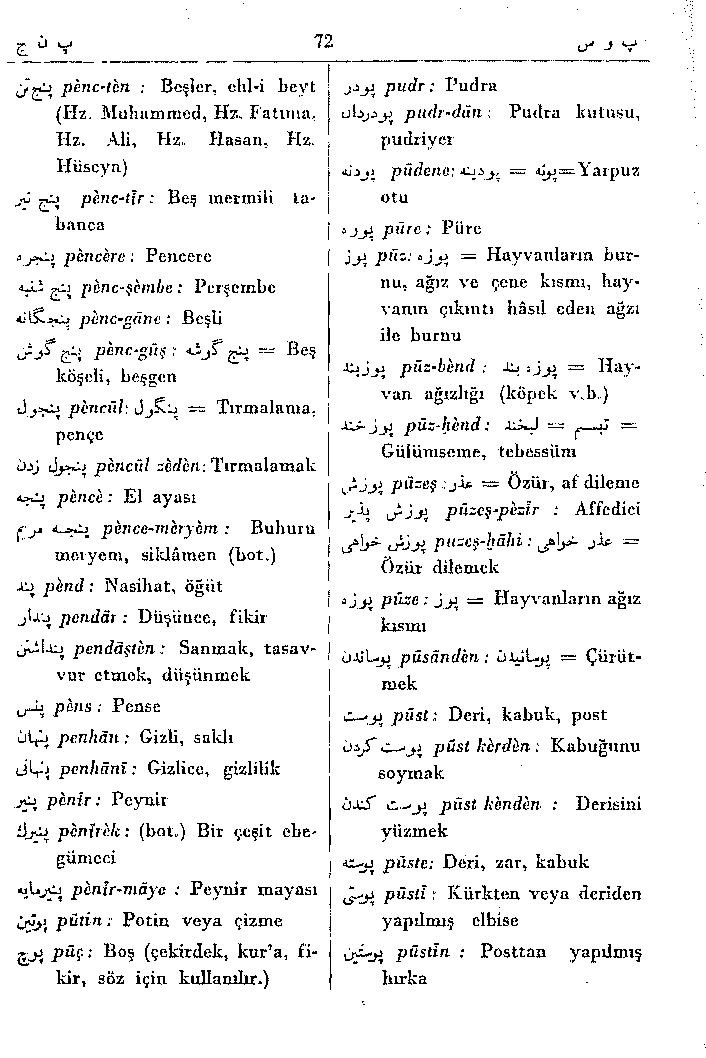 پ ن ج 72 پ و س
پنج تن pènc-tèn : Beşler, ehl-i beyt
(Hz. Muhammed, Hz. Fatıma,
Hz. Ali, Hz. Hasan, Hz.
Hüseyn)
پنج تیر pènc-tîr : Beş mermili ta-
banca
پنجره pèncère : Pencere
پنج شنبه pènc-şèmbe : Perşembe
پنجگانه pènc-gâne : Beşli
پنج گوش pènc-gûş : پنج گوشه = Beş
köşeli, beşgen
پنجول pèncûl : پنگول = Tırmalama,
pençe
پنجول زدن pèncûl zèdèn : Tırmalamak
پنجه pèncè : El ayası
پنجه مریم pènce-mèryèm : Buhuru
meryem, siklâmen (bot.)
پند pènd : Nasihat, öğüt
پندار pendâr : Düşünce, fikir
پنداشتن pendâştèn : Sanmak, tasav-
vur etmek, düşünmek
پنس pèns : Pense
پنهان penhân : Gizli, saklı
پنهانی penhânî : Gizlice, gizlilik
پنیر pènîr : Peynir
پنیرك pènîrèk : (bot.) Bir çeşit ebe-
gümeci
پنیرمایه pènîr-mâye : Peynir mayası
پوتین pûtin : Potin veya çizme
پوچ pûç : Boş (çekirdek, kur'a, fi-
kir, söz için kullanılır.)
پودر pudr : Pudra
پودردان pudr-dân : Pudra kutusu,
pudriyer
پودنه pûdene : پودینه = پونه = Yarpuz
otu
پوره pûre : Püre
پوز pûz : پوزه = Hayvanların bur-
nu, ağız ve çene kısmı, hay-
vanın çıkıntı hâsıl eden ağzı
ile burnu
پوزبند pûz-bènd : پوزه بند = Hay-
van ağızlığı (köpek v.b.)
پوزخند pûz-ḫènd : لبخند = تبسم =
Gülümseme, tebessüm
پوزش pûzeş : عذر = Özür, af dileme
پوزش پذیر pûzeş-pèzîr : Affedici
پوزش خواهی puzeş-ḫâhî : عذر خواهی =
Özür dilemek
پوزه pûze : پوز = Hayvanların ağız
kısmı
پوساندن pûsândèn : پوسانیدن = Çürüt-
mek
پوست pûst : Deri, kabuk, post
پوست کردن pûst kèrdèn : Kabuğunu
soymak
پوست کندن pûst kèndèn : Derisini
yüzmek
پوسته pûste : Deri, zar, kabuk
پوستی pûstî : Kürkten veya deriden
yapılmış elbise
پوستین pûstîn : Posttan yapılmış
hırka